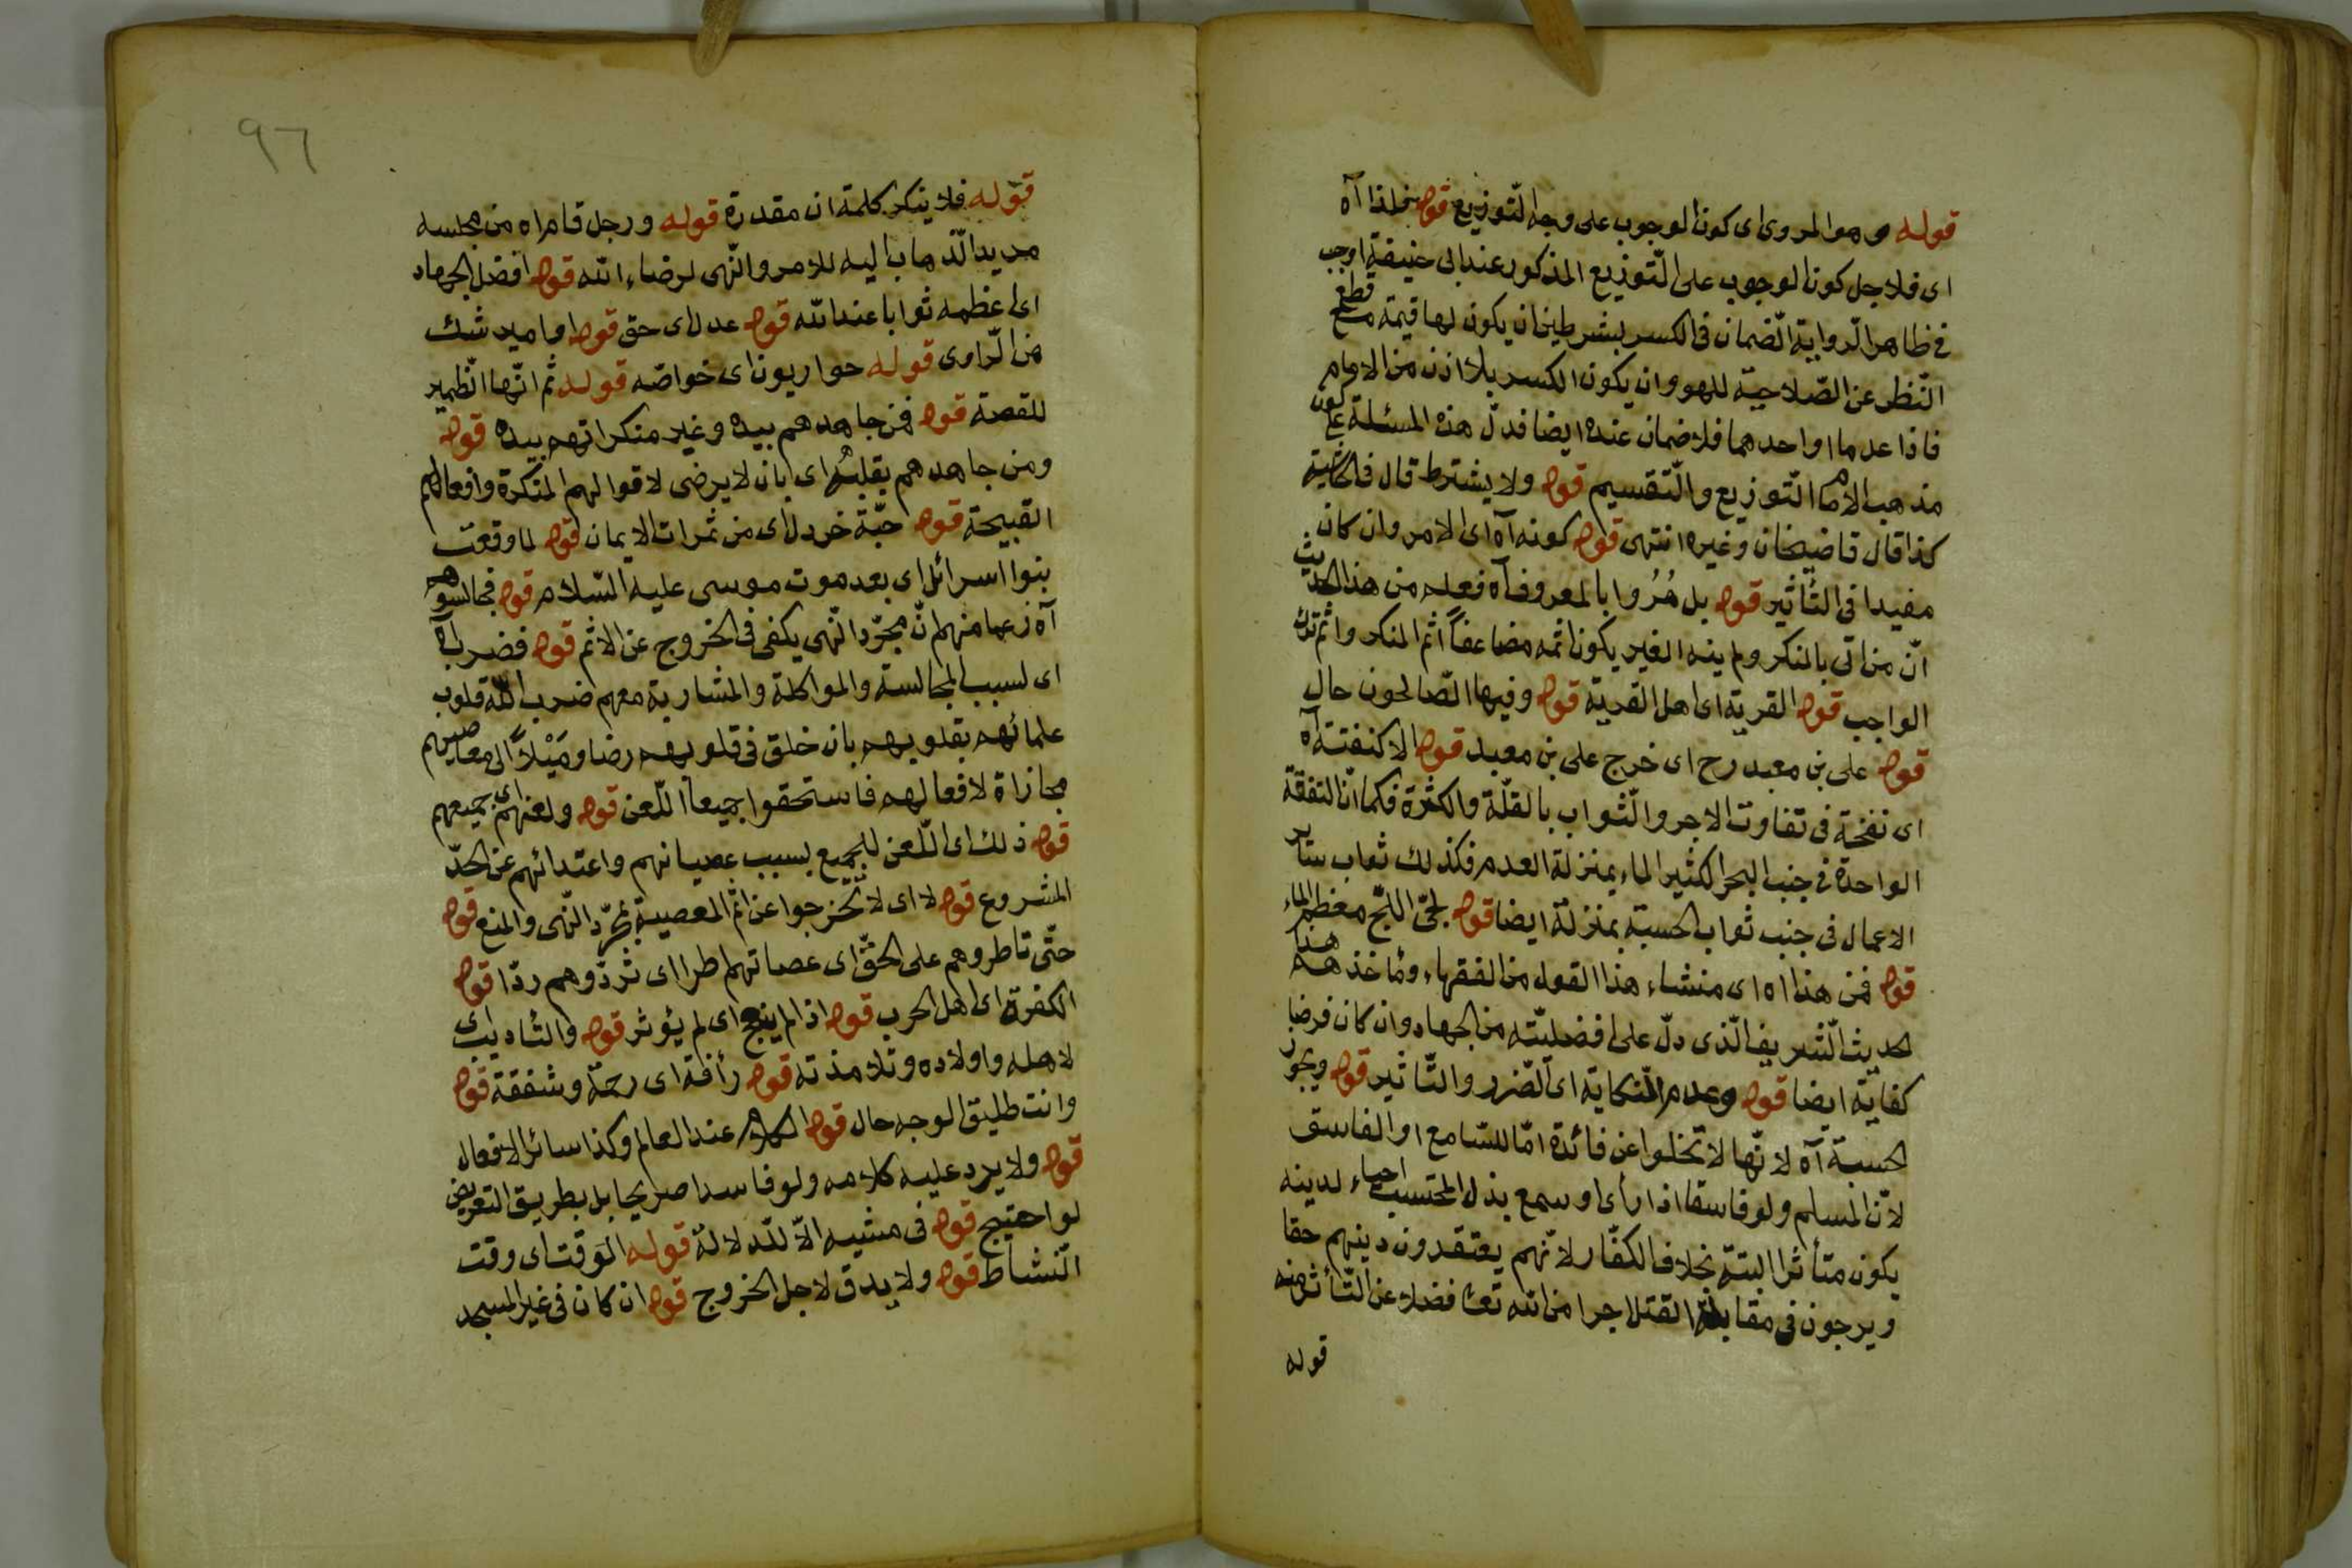 قوله وهو المروى اى كون الوجوب على وجه التّوزيع قوله فلذا آه
اى فلاجل كون الوجوب على التّوزيع المذكور عند ابى حنيفة اوجب
فى ظاهر الرواية الضمان فى الكسر بشرطين ان يكون لها قيمة مع قطع
النّظر عن الصّلاحيّة للهو وان يكون الكسر بلا اذن من الامام
فاذا عدما او احدهما فلا ضمان عنده ايضا فدلّ هذه المسئلة على كون
مذهب الامام التّوزيع والتّقسيم قوله ولا يشترط قال فى
كذا قال قاضيخان وغيره انتهى قوله كونه آه اى الامر وان كان
مفيدا فى التّأثير قوله بل مُرُوا بالمعروف آه فعلم من هذا الحديث
انّ من اتى بالمنكر ولم ينه الغير يكون اثمه مضاعفاً اثم المنكر واثم ترك
الواجب قوله القرية اى اهل القرية قوله وفيها الصّالحون حال
قوله على بن معبد رح اى خرج على بن معبد قوله الا كنفثة آه
اى نفخة فى تفاوت الاجر والثّواب بالقلّة والكثرة فكما انّ التفقة
الواحدة فى جنب البحر الكثير الماء بمنزلة العدم فكذلك ثواب سائر
الاعمال فى جنب ثواب الحسبة بمنزلة ايضا قوله لجّى اللجّ معظم الماء
قوله فمن هذا اه اى منشاء هذا القول من الفقهاء ومأخذهم هذا
الحديث الشّريف الّذى دلّ على افضليّته من الجهاد وان كان فرض
كفاية ايضا قوله وعدم النّكاية اى الضّرر والتّاثير قوله ويجوز
الحسبة آه لانّها لا تخلوا عن فائدة امّا للسّامع او الفاسق
لانّ المسلم ولو فاسقا اذا رأى او سمع بذل المحتسب احياء لدينه
يكون متأثرا البتّة بخلاف الكفّار لانّهم يعتقدون دينهم حقا
ويرجون فى مقابلة القتل اجرا من الله تعا فضلا عن التّأثر منه
قوله
٩٦
قوله فلا ينكر كلمة ان مقدرة قوله ورجل قام اه من مجلسه
مريد الذّهاب اليه للامر والنّهى لرضاء الله قوله افضل الجهاد
اى اعظمه ثوابا عند الله قوله عدل اى حق قوله او امير شك
من الرّاوى قوله حواريون اى خواصّه قوله ثم انّها الضّمير
للقصة قوله فمن جاهدهم بيده وغير منكراتهم بيده قوله
ومن جاهدهم بقلبه اى بان لا يرضى لاقوالهم المنكرة وافعالهم
القبيحة قوله حبّة خردل اى من ثمرات الايمان قوله لما وقعت
بنوا اسرائل اى بعد موت موسى عليه السّلام قوله فجالسوهم
آه زعما منهم انّ مجرّد النّهى يكفى فى الخروج عن الاثم قوله فضرب آه
اى لسبب المجالسة والمواكلة والمشاربة معهم ضرب الله قلوب
علمائهم بقلوبهم بان خلق فى قلوبهم رضا ومَيْلاً الى معاصيهم
مجازاة لافعالهم فاستحقوا جميعا اللّعن قوله ولعنهم اى جميعهم
قوله ذلك اى اللّعن للجميع بسبب عصيانهم واعتدائهم عن الحدّ
المشروع قوله لا اى لا تخرجوا عن اثم المعصية بمجرّد النّهى والمنع قوله
حتّى تاطروهم على الحقّ اى عصاتهم اطرا اى تردّوهم ردّا قوله
الكفرة اى اهل الحرب قوله اذا لم ينجع اى لم يؤثر قوله والتّاديب اى
لاهله واولاده وتلامذته قوله رأفة اى رحمة وشفقة قوله
وانت طليق الوجه حال قوله الكلام عند العالم وكذا سائر الافعال
قوله ولا يرد عليه كلامه ولو فاسدا صريحا بل بطريق التعريض
لو احتيج قوله فى مشيه الّا للدلالة قوله الوقت اى وقت
النّشاط قوله ولا يدق لاجل الخروج قوله ان كان فى غير المسجد